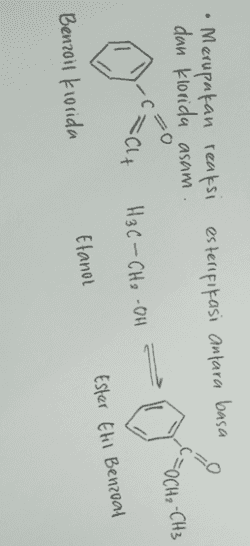 • Merupakan reaksi esterifikasi antara basa
dan klorida asam.
C
O
Cl +
H3C - CH2 - OH
C
O
OCH2 - CH3
Benzoil klorida
Etanol
Ester Etil Benzoat